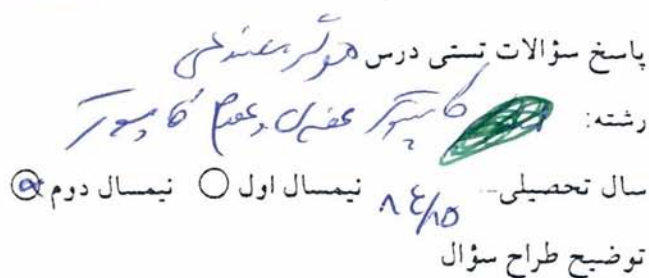 پاسخ سؤالات تستی درس هوش مصنوعی
رشته: کامپیوتر علوم کامپیوتر
سال تحصیلی- ۸۴/۸۵ نیمسال اول ○ نیمسال دوم
توضیح طراح سؤال